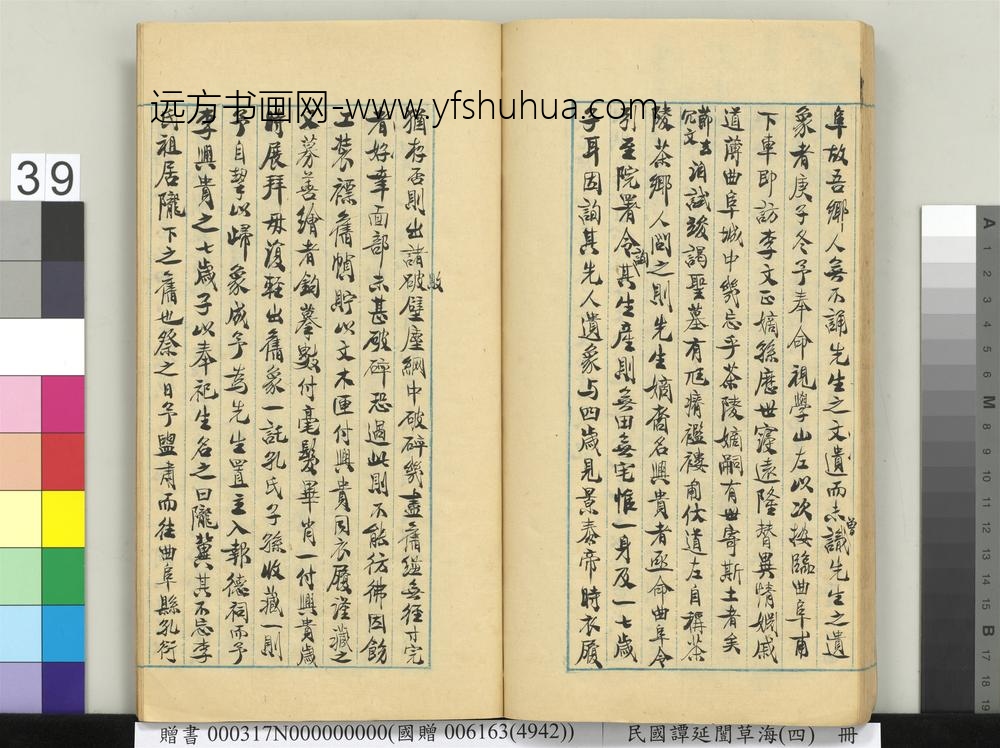 阜故吾鄉人無不誦先生之文遺而未識先生之遺
曾
象者庚子冬予奉命視學山左以次按臨曲阜甫
下車即訪李文正嫡孫歷世寖遠隆替異情姻戚
道薄曲阜城中幾忘乎茶陵嫡嗣有世寄斯土者矣
試竣謁聖墓有尫瘠襤褸匍伏道左自稱茶
陵茶鄉人問之則先生嫡裔名興貴者亟命曲阜令
引至院署令其生產則無田無宅惟一身及一七歲
詢
子耳因詢其先人遺象与四歲見景泰帝時衣履
猶存否則出諸破壁塵網中破碎幾盡舊縑無徑寸完
敗
者好幸面部未甚破碎恐過此則不能彷彿因飭
工裝褾舊幀貯以文木匣付興貴同衣履謹藏之
又募善繪者鈎摹數付毫髮畢肖一付興貴歲
時展拜毋復輕出舊象一託孔氏子孫收藏一則
予自挈以歸象成予為先生置主入報德祠而予
李興貴之七歲子以奉祀生名之曰隴冀其不忘李
祖居隴下之舊也祭之日予盥肅而往曲阜縣孔衍
远方书画网-www.yfshuhua.com
39
A 1 2 3 4 5 6 M 8 9 10 11 12 13 14 15 B 17 18 19
贈書 000317N000000000(國贈 006163(4942)) 民國譚延闓草海(四) 冊